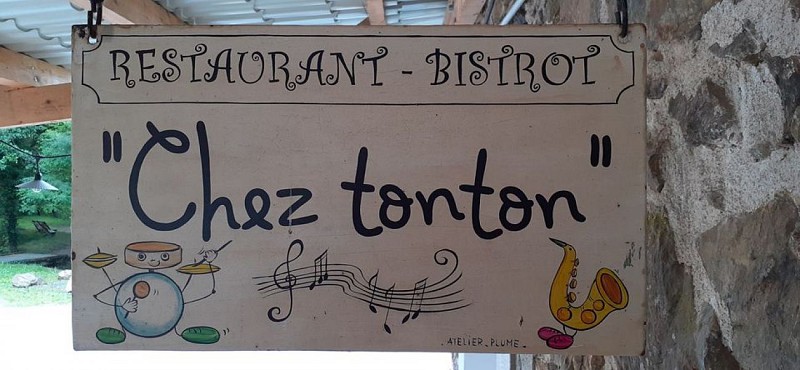 RESTAURANT - BISTROT
"Chez tonton"
- ATELIER - PLUME -